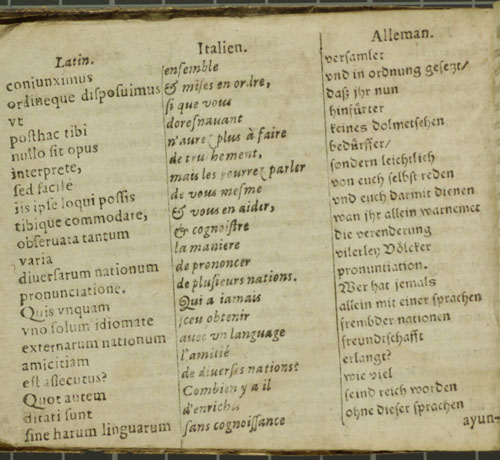 Latin.
coniunximus
ordineque disposuimus
vt
posthac tibi
nullo sit opus
interprete,
sed facile
iis ipse loqui possis
tibique commodare,
obseruata tantum
varia
diuersarum nationum
pronunciatione.
Quis vnquam
vno solum idiomate
externarum nationum
amicitiam
est assecutus?
Quot autem
ditari sunt
sine harum linguarum
Italien.
ensemble
& mises en ordre,
si que vous
doresnauant
n'aurez plus à faire
de truchement,
mais les pourrez parler
de vous mesme
& vous en aider,
& cognoistre
la maniere
de prononcer
de plusieurs nations.
Qui a iamais
sceu obtenir
auec vn language
l'amitié
de diuerses nations?
Combien y a il
d'enrichs
sans cognoissance
Alleman.
versamlet
vnd in ordnung gesetzt/
daß jhr nun
hinfürter
keines dolmetschen
bedürffet/
sondern leichtlich
von euch selbst reden
vnd euch darmit dienen
wan jhr allein warnemet
die verenderung
vilerley Völcker
pronuntiation.
Wer hat jemals
allein mit einer sprachen
frembder nationen
freundtschafft
erlangt?
wie viel
seind reich worden
ohne dieser sprachen
ayun-